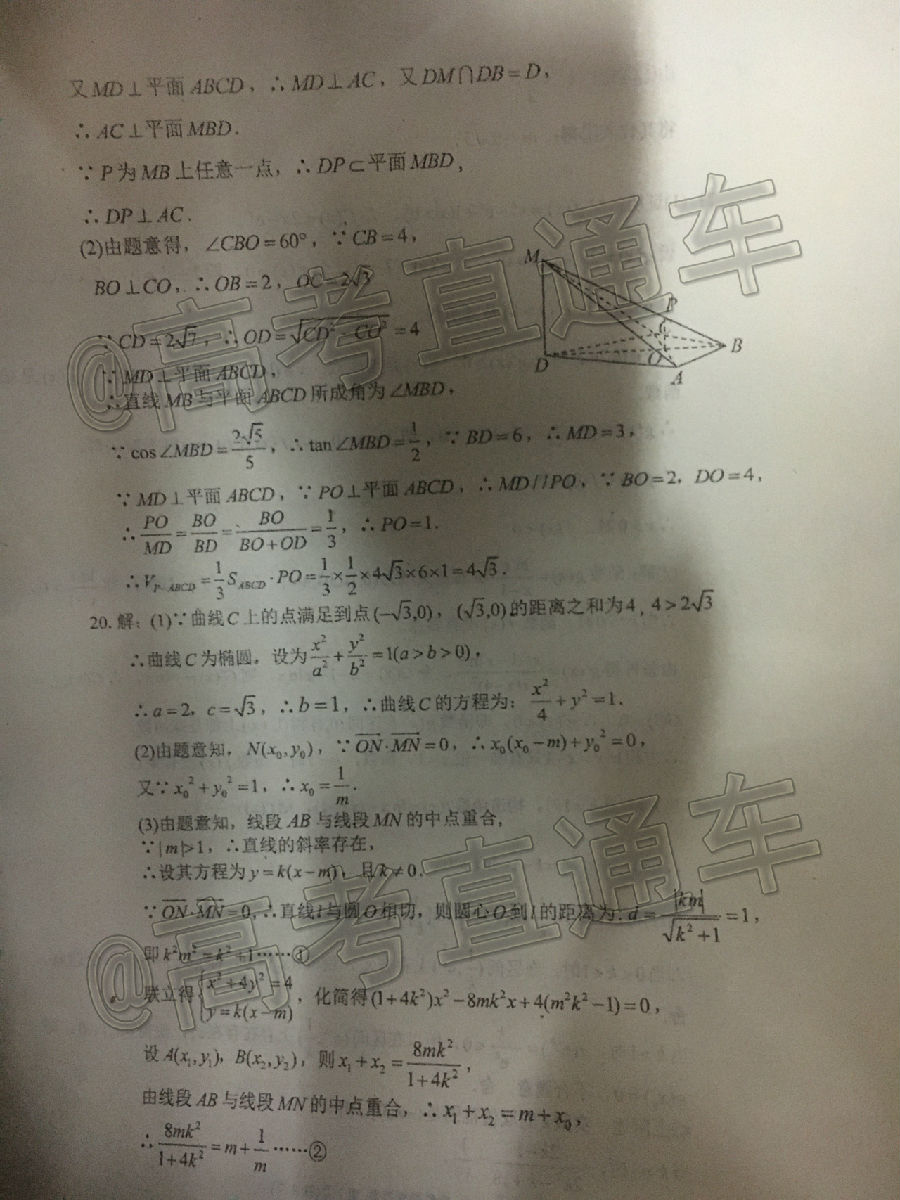 又MD⊥平面ABCD，∴MD⊥AC，又DM∩DB=D，
∴AC⊥平面MBD．
∵P为MB上任意一点，∴DP⊂平面MBD，
∴DP⊥AC．
(2)由题意得，∠CBO=60°，∵CB=4，
BO⊥CO，∴OB=2，OC=2√3
∵CD=2√7，∴OD=√(CD²-CO²)=4
∵MD⊥平面ABCD，
∴直线MB与平面ABCD所成角为∠MBD，
M
P
B
D
O
A
∵cos∠MBD=2√5/5，∴tan∠MBD=1/2，∵BD=6，∴MD=3，
∵MD⊥平面ABCD，∵PO⊥平面ABCD，∴MD//PO，∵BO=2，DO=4，
∴PO/MD=BO/BD=BO/(BO+OD)=1/3，∴PO=1．
∴V_{P-ABCD}=1/3 S_{ABCD}·PO=1/3×1/2×4√3×6×1=4√3．
20.解：(1)∵曲线C上的点满足到点(-√3,0)，(√3,0)的距离之和为4，4>2√3
∴曲线C为椭圆。设为x²/a²+y²/b²=1(a>b>0)，
∴a=2，c=√3，∴b=1，∴曲线C的方程为：x²/4+y²=1．
(2)由题意知，N(x₀,y₀)，∵ON·MN=0，∴x₀(x₀-m)+y₀²=0，
又∵x₀²+y₀²=1，∴x₀=1/m．
(3)由题意知，线段AB与线段MN的中点重合，
∵|m|>1，∴直线的斜率存在，
∴设其方程为y=k(x-m)，且k≠0．
∵ON·MN=0，∴直线l与圆O相切，则圆心O到l的距离为：d=|km|/√(k²+1)=1，
即k²m²=k²+1……①
联立得{x²+4y²=4 y=k(x-m)，化简得(1+4k²)x²-8mk²x+4(m²k²-1)=0，
设A(x₁,y₁)，B(x₂,y₂)，则x₁+x₂=8mk²/(1+4k²)，
由线段AB与线段MN的中点重合，∴x₁+x₂=m+x₀，
∴8mk²/(1+4k²)=m+1/m……②
@高考直通车
@高考直通车